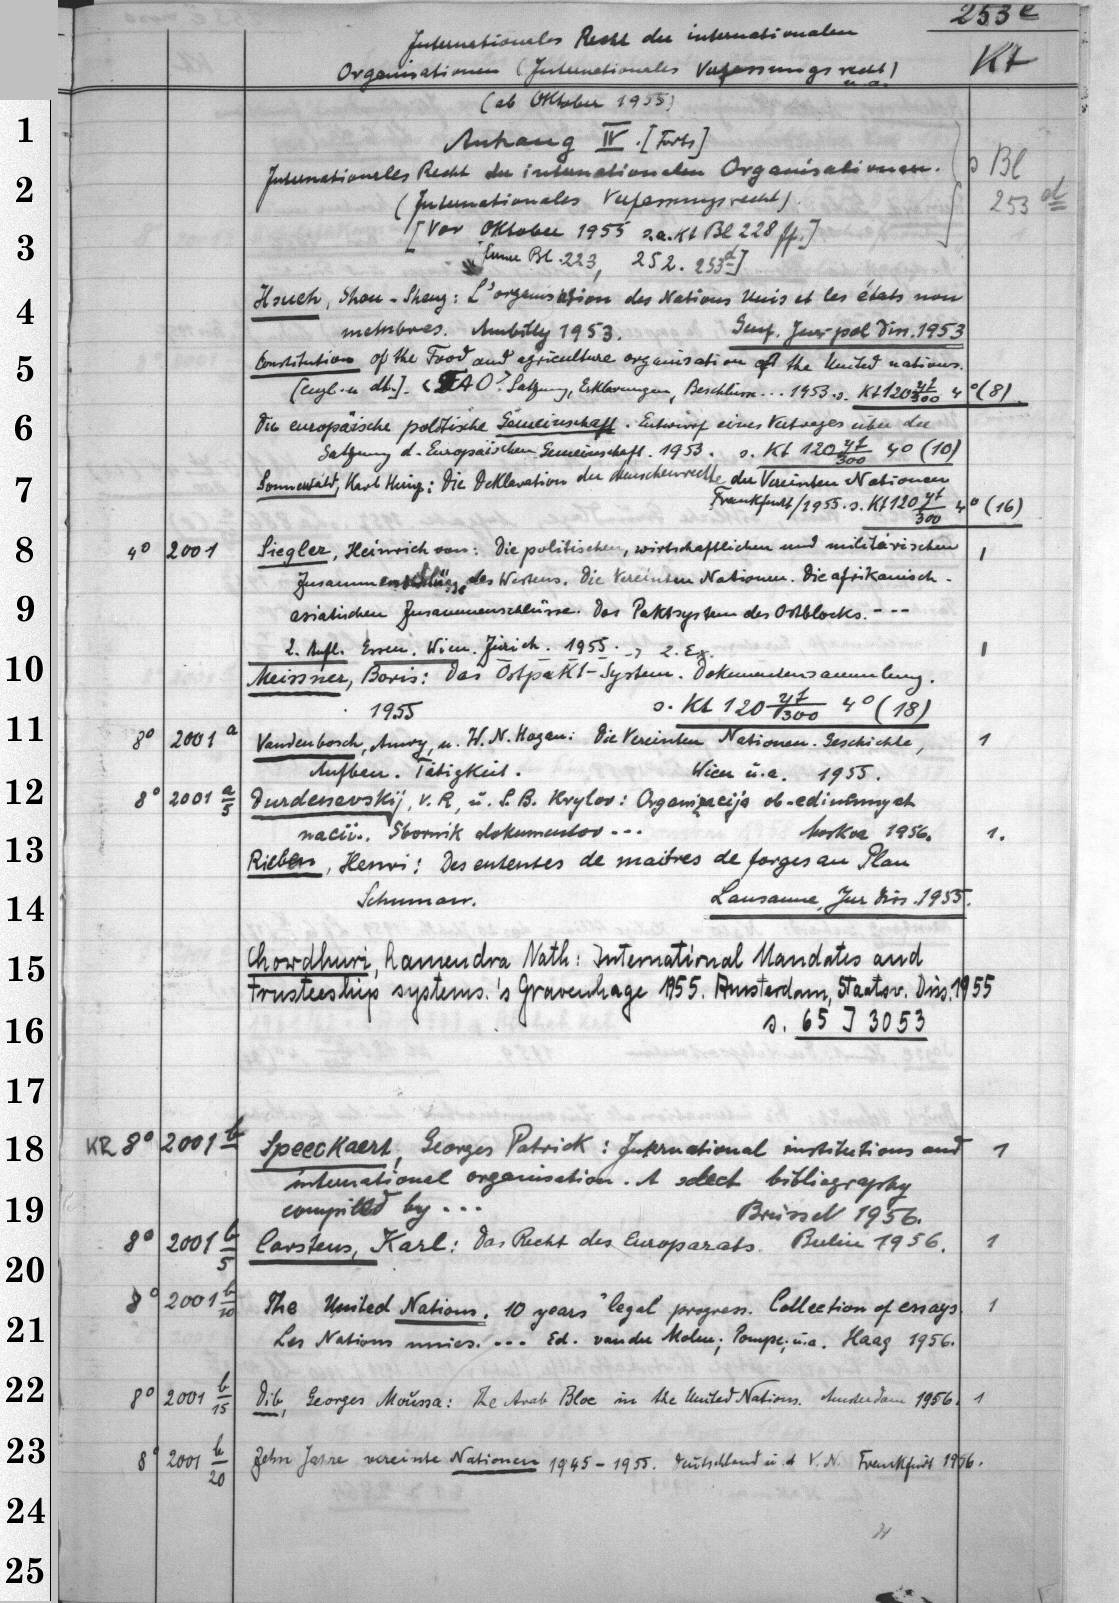 253 e
Internationales Recht der internationalen
Organisationen (Internationales Verfassungsrecht) Kt
u.a.
(ab Oktober 1955)
1 Anhang IV. [Forts]
2 Internationales Recht der internationalen Organisationen. s Bl
(Internationales Verfassungsrecht). 253 d
3 [Vor Oktober 1955 s.a. Kt Bl 228 ff.]
Bl. 223, 252. 253 d]
4 Hsueh, Shou-Sheng: L'organisation des Nations Unis et les états non
membres. Ambilly 1953. Genf. Jur pol Diss. 1953
5 Constitution of the Food and agriculture organisation of the United nations.
[engl. u. dt.]. <FAO? Satzung, Erklärungen, Beschlüsse... 1953. s. Kt 120 yt/300 4° (8).
6 Die europäische politische Gemeinschaft. Entwurf eines Vertrages über die
Satzung d. Europäischen Gemeinschaft. 1953. s. Kt 120 yt/300 4° (10)
7 Sonnewald, Karl Heinz: Die Deklaration der Menschenrechte der Vereinten Nationen
Frankfurt/1955. s. Kt 120 yt/300 4° (16)
8 4° 2001 Siegler, Heinrich von: Die politischen, wirtschaftlichen und militärischen 1
Zusammenschlüsse des Westens. Die Vereinten Nationen. Die afrikanisch-
9 asiatischen Zusammenschlüsse. Das Paktsystem des Ostblocks. ---
2. Aufl. Essen. Wien. Zürich. 1955. 2. Ex. 1
10 Meissner, Boris: Das Ostpakt-System. Dokumentensammlung.
1955 s. Kt 120 yt/300 4° (18)
11 8° 2001 a Vandenbosch, Amry, u. W. N. Hogan: Die Vereinten Nationen. Geschichte, 1
Aufbau. Tätigkeit. Wien u.a. 1955.
12 8° 2001 a/5 Durdenevskij, V. R, u. S. B. Krylov: Organizacija ob-edinennych
nacij. Sbornik dokumentov --- Moskva 1956. 1.
13 Rieben, Henri: Des ententes de maîtres de forges au Plan
14 Schuman. Lausanne, Jur Diss. 1955.
15 Chowdhuri, Ramendra Nath: International Mandates and
Trusteeship systems. 's Gravenhage 1955. Amsterdam, Staatsv. Diss. 1955
16 s. 65 J 3053
17
18 KR 8° 2001 b Speeckaert, Georges Patrick: International institutions and 1
international organisation. A select bibliography
19 compiled by --- Brüssel 1956.
8° 2001 b/5 Carstens, Karl: Das Recht des Europarats. Berlin 1956. 1
20
8° 2001 b/10 The United Nations. 10 years' legal progress. Collection of essays. 1
21 Les Nations unies. --- Ed. van der Molen; Pompe; u.a. Haag 1956.
22 8° 2001 b/15 Dib, Georges Moussa: The Arab Bloc in the United Nations. Amsterdam 1956. 1
23 8° 2001 b/20 Zehn Jahre vereinte Nationen 1945-1955. Deutschland u. d. V. N. Frankfurt 1956.
24
25